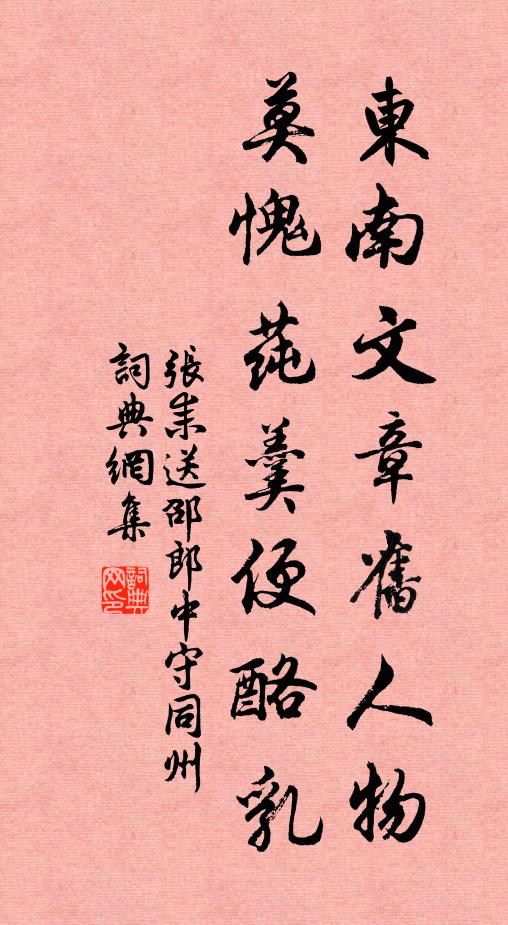 東南文章舊人物
莫愧蓴羹便酪乳
張耒送邵郎中守同州
詞典網集
詞典
网印